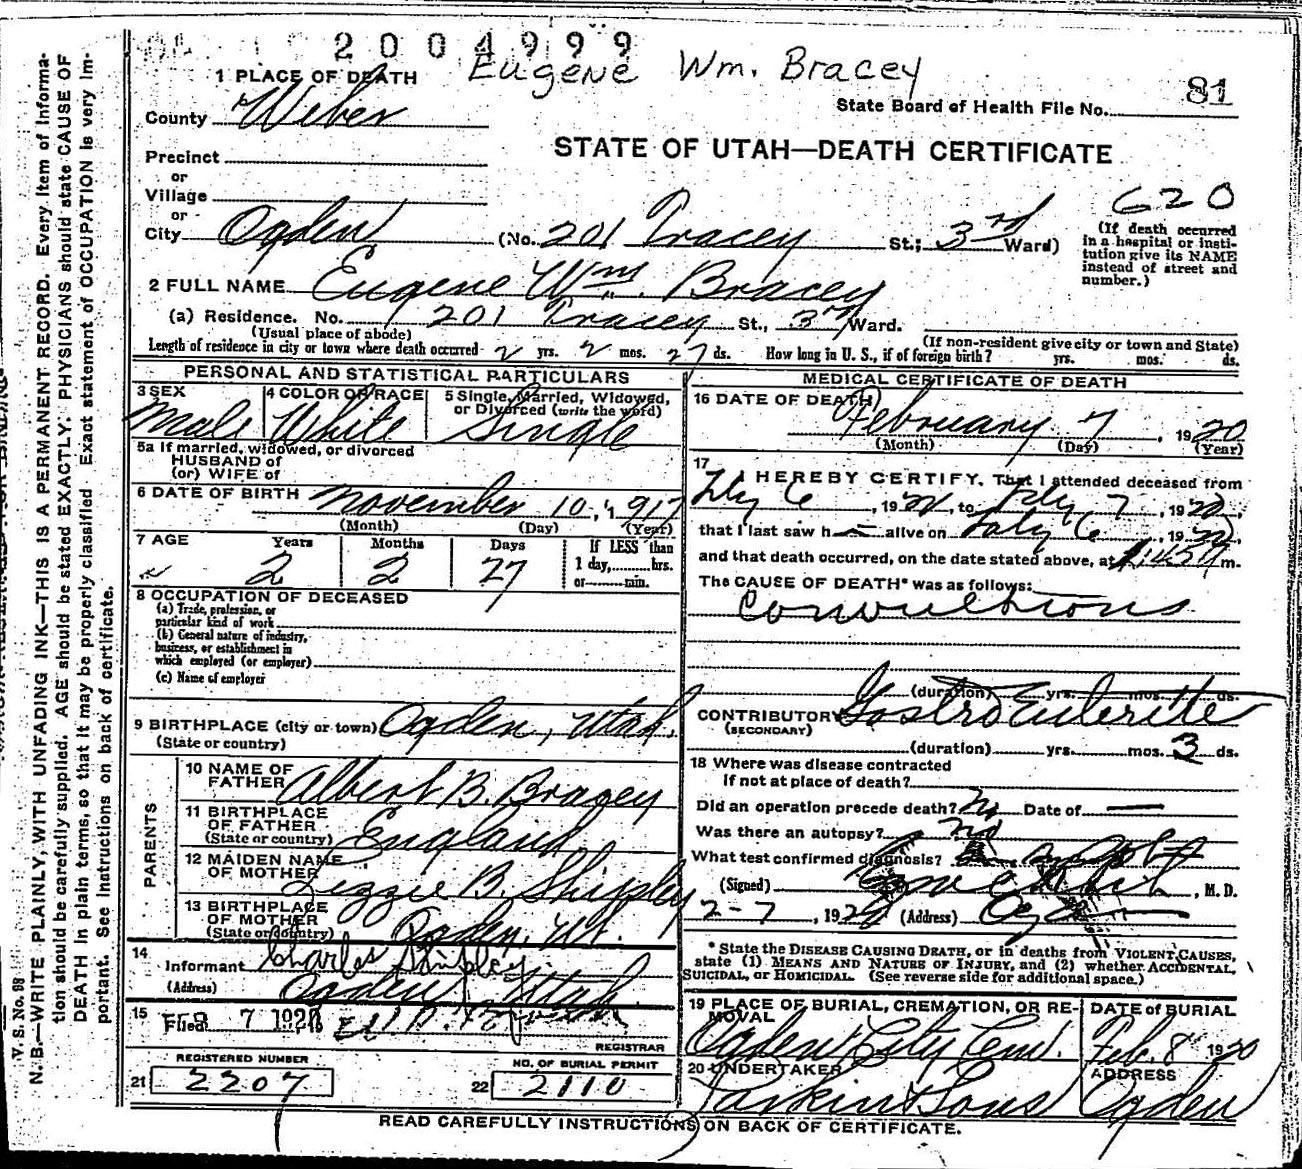 2004999
Eugene Wm. Bracey
81
1 PLACE OF DEATH
State Board of Health File No.
County Weber
STATE OF UTAH—DEATH CERTIFICATE
Precinct
or
Village
or
620
City Ogden (No. 201 Tracey St.; 3rd Ward)
(If death occurred in a hospital or insti-
tution give its NAME
instead of street and
number.)
2 FULL NAME Eugene Wm. Bracey
(a) Residence. No. 201 Tracey St., 3rd Ward.
(Usual place of abode) (If non-resident give city or town and State)
Length of residence in city or town where death occurred 2 yrs. 2 mos. 27 ds. How long in U. S., if of foreign birth? yrs. mos. ds.
PERSONAL AND STATISTICAL PARTICULARS
3 SEX 4 COLOR OR RACE 5 Single, Married, Widowed,
or Divorced (write the word)
Male White Single
5a If married, widowed, or divorced
HUSBAND of
(or) WIFE of
6 DATE OF BIRTH November 10, 1917
(Month) (Day) (Year)
7 AGE Years Months Days If LESS than
1 day, hrs.
or min.
2 2 27
8 OCCUPATION OF DECEASED
(a) Trade, profession, or
particular kind of work
(b) General nature of industry,
business, or establishment in
which employed (or employer)
(c) Name of employer
9 BIRTHPLACE (city or town) Ogden, Utah.
(State or country)
PARENTS
10 NAME OF
FATHER Albert B. Bracey
11 BIRTHPLACE
OF FATHER
(State or country) England
12 MAIDEN NAME
OF MOTHER Lizzie B. Shipley
13 BIRTHPLACE
OF MOTHER
(State or Country) Ogden, Ut.
14
Informant Charles Shipley
(Address) Ogden, Utah.
15 Filed 7 1920
REGISTRAR
REGISTERED NUMBER NO. OF BURIAL PERMIT
21 2207 22 2110
MEDICAL CERTIFICATE OF DEATH
16 DATE OF DEATH
February 7, 1920
(Month) (Day) (Year)
17
I HEREBY CERTIFY, That I attended deceased from
Feby 6, 1920, to Feby 7, 1920,
that I last saw h alive on Feby 6, 1920,
and that death occurred, on the date stated above, at m.
The CAUSE OF DEATH* was as follows:
Convultions
(duration) yrs. mos. ds.
CONTRIBUTORY Gastro Enterite
(SECONDARY)
(duration) yrs. mos. 3 ds.
18 Where was disease contracted
if not at place of death?
Did an operation precede death? No Date of —
Was there an autopsy? no
What test confirmed diagnosis?
(Signed) , M. D.
2-7, 1920 (Address)
* State the DISEASE CAUSING DEATH, or in deaths from VIOLENT CAUSES,
state (1) MEANS AND NATURE OF INJURY, and (2) whether ACCIDENTAL,
SUICIDAL, or HOMICIDAL. (See reverse side for additional space.)
19 PLACE OF BURIAL, CREMATION, OR RE-
MOVAL DATE OF BURIAL
Ogden City Cem. Feb. 8 1920
20 UNDERTAKER ADDRESS
Larkin & Sons Ogden
READ CAREFULLY INSTRUCTIONS ON BACK OF CERTIFICATE.
V. S. No. 98
N. B.—WRITE PLAINLY, WITH UNFADING INK—THIS IS A PERMANENT RECORD. Every item of informa-
tion should be carefully supplied. AGE should be stated EXACTLY. PHYSICIANS should state CAUSE OF
DEATH in plain terms, so that it may be properly classified. Exact statement of OCCUPATION is very im-
portant. See instructions on back of certificate.